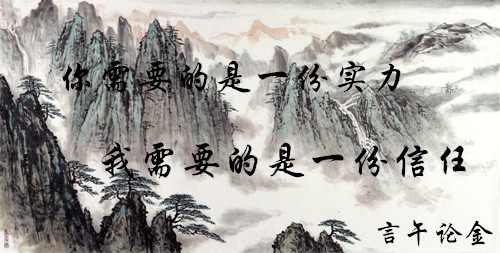 你需要的是一份实力
我需要的是一份信任
言午论金